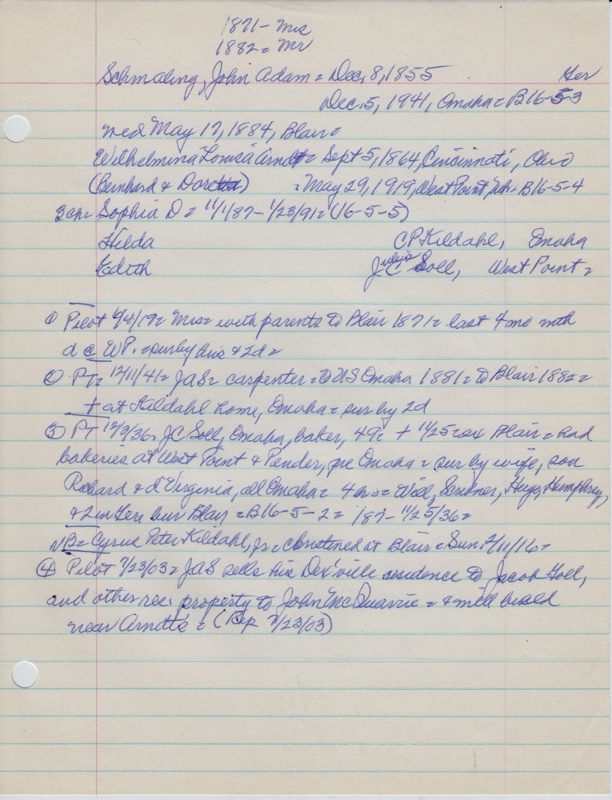 1871 - Mrs
1882 = Mr
Schmaling, John Adam = Dec, 8, 1855 Ger
Dec. 5, 1941, Omaha = B16-5-3
med May 17, 1884, Blair =
Wilhelmina Louisa Arndt = Sept 5, 1864, Cincinnati, Ohio
(Bernhard & Doretta) = May 29, 1919, West Point, B16-5-4
3 ch = Sophia D = 11/1/87 - 1/23/91 = (16-5-5)
Hilda C.P. Kildahl, Omaha
Edith Julius C Soll, West Point =
① Pilot 6/4/19 = Mrs = with parents to Blair 1871 = last 4 mo with
d @ W.P. = sur by hus & 2d =
② PT = 12/11/41 = JAS = carpenter = to US Omaha 1881 = to Blair 1882 =
+ at Kildahl home, Omaha = sur by 2d
③ PT 12/3/36, JC Soll, Omaha, baker, 49, + 11/25 = Blair = had
bakeries at West Point & Pender, pre Omaha = sur by wife, son
Richard & d Virginia, all Omaha = 4 bros = Will, Scribner, Hugo, Humphrey,
bur Blair = B16-5-2 = '87 - 11/25/36 =
NB = Cyrus Peter Kildahl, Jr = christened at Blair = Sun. 2/11/16 =
④ Pilot 7/23/03 = JAS sells his Dex'ville residence to Jacob Goll,
and other res. property to John McQuarrie = & will build
near Arndt's = (Rep 7/23/03)